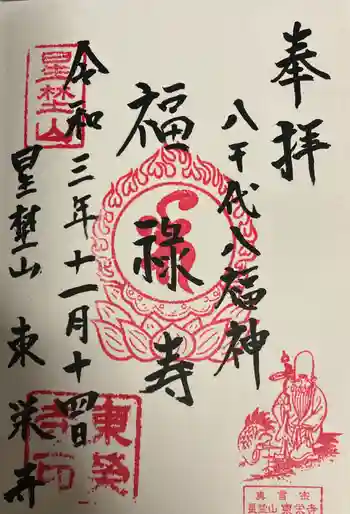 奉拝
八千代八福神
福禄寿
令和三年十一月十四日
星埜山 東栄寺
星埜山
東栄寺印
真言宗
星埜山 東栄寺